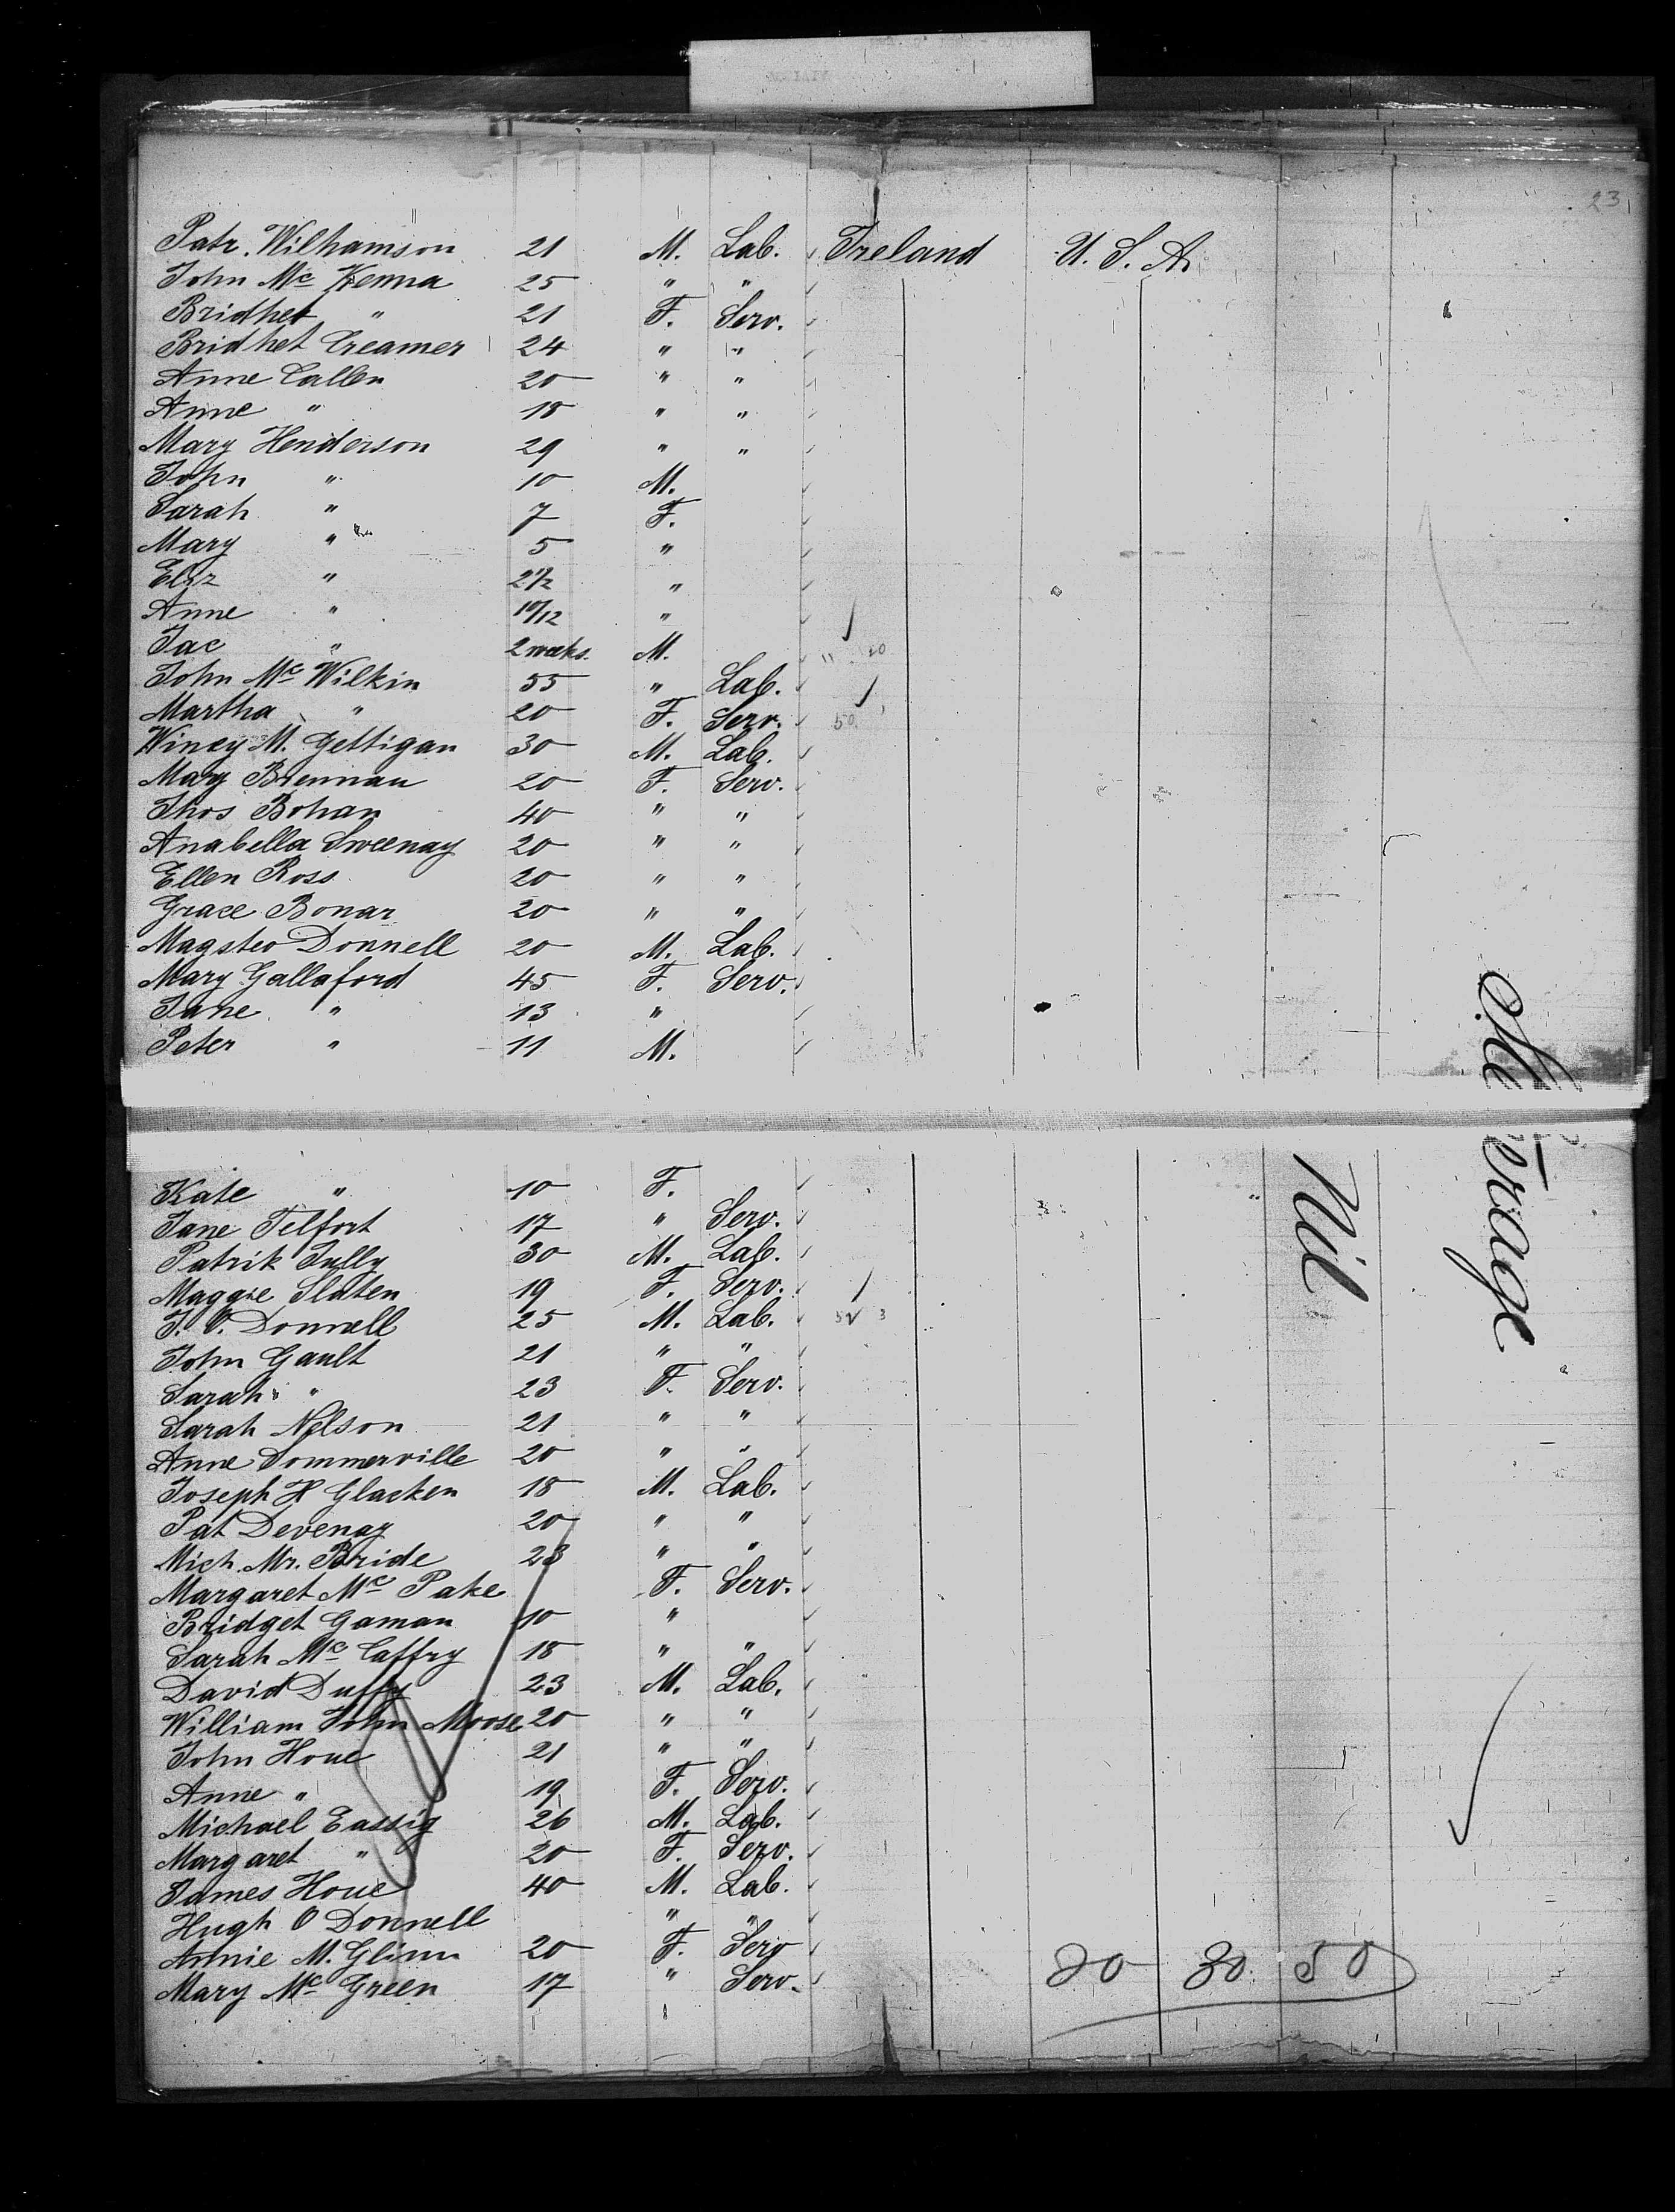 23
Patr. Wilhamson 21 M. Lab. Ireland U. S. A.
John Mc Kenna 25 " "
Bridhet " 21 F. Serv.
Bridhet Creamer 24 " "
Anne Callen 20 " "
Anne " 18 " "
Mary Henderson 29 " "
John " 10 M.
Sarah " 7 F.
Mary " 5 "
Eliz " 2 1/2 "
Anne " 10/12 "
Jac " 2 weeks. M.
John Mc Wilkin 55 " Lab.
Martha " 20 F. Serv. 50
Winey M. Gettigan 30 M. Lab.
Mary Brennan 20 F. Serv.
Thos Bohan 40 " "
Anabella Sweenay 20 " "
Ellen Ross 20 " "
Grace Bonar 20 " "
Magsteo Donnell 20 M. Lab.
Mary Gallaford 45 F. Serv.
Jane " 13 "
Peter " 11 M.
Kate " 10 F.
Jane Telfort 17 " Serv.
Patrik Tully 30 M. Lab.
Maggie Slaten 19 F. Serv.
J. O. Donnell 25 M. Lab.
John Gault 21 " "
Sarah " 23 F. Serv.
Sarah Nelson 21 " "
Anne Sommerville 20 " "
Joseph H Glacken 18 M. Lab.
Pat Devenay 20 " "
Mich. Mr. Bride 23 " "
Margaret Mc Pake F. Serv.
Bridget Gaman 10 "
Sarah Mc Caffry 18 " "
David Duffy 23 M. Lab.
William John Moose 20 " "
John Houe 21 " "
Anne " 19 F. Serv.
Michael Eassig 26 M. Lab.
Margaret " 20 F. Serv.
James Houe 40 M. Lab.
Hugh O Donnell " "
Annie M. Glinn 20 F. Serv
Mary Mc Green 17 " Serv.
Nil
20 30 50